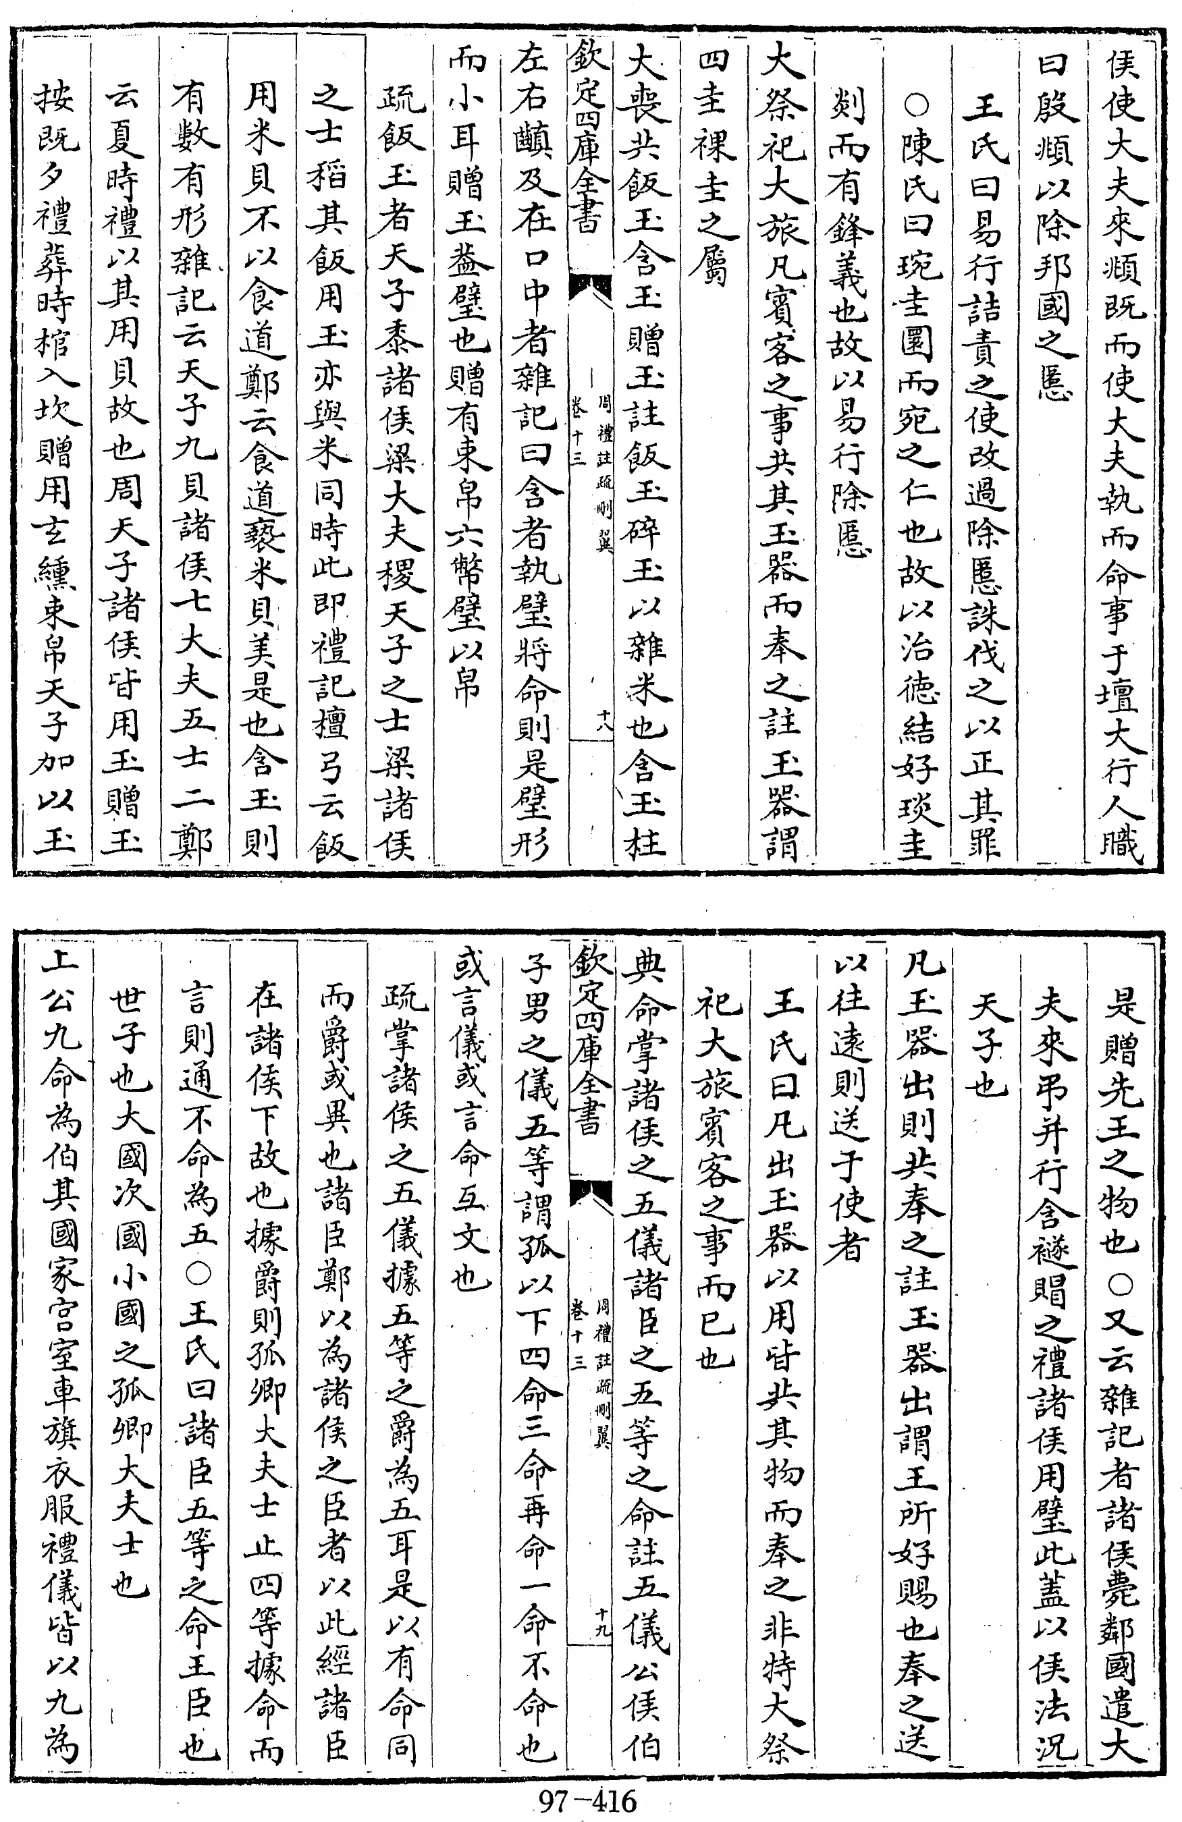 侯使大夫來頫既而使大夫執而命事于壇大行人職
曰殷頫以除邦國之慝
王氏曰易行詰責之使改過除慝誅伐之以正其罪
○陳氏曰琬圭圜而宛之仁也故以治德結好琰圭
剡而有鋒義也故以易行除慝
大祭祀大旅凡賓客之事共其玉器而奉之註玉器謂
四圭祼圭之屬
大喪共飯玉含玉贈玉註飯玉碎玉以雜米也含玉柱
欽定四庫全書
周禮註疏刪翼
卷十三
十八
左右齻及在口中者雜記曰含者執璧將命則是璧形
而小耳贈玉蓋璧也贈有束帛六幣璧以帛
疏飯玉者天子黍諸侯粱大夫稷天子之士粱諸侯
之士稻其飯用玉亦與米同時此即禮記檀弓云飯
用米貝不以食道鄭云食道䙝米貝美是也含玉則
有數有形雜記云天子九貝諸侯七大夫五士二鄭
云夏時禮以其用貝故也周天子諸侯皆用玉贈玉
按既夕禮葬時棺入坎贈用玄纁束帛天子加以玉
是贈先王之物也○又云雜記者諸侯薨鄰國遣大
夫來弔并行含襚賵之禮諸侯用璧此蓋以侯法況
天子也
凡玉器出則共奉之註玉器出謂王所好賜也奉之送
以往遠則送于使者
王氏曰凡出玉器以用皆共其物而奉之非特大祭
祀大旅賓客之事而已也
典命掌諸侯之五儀諸臣之五等之命註五儀公侯伯
欽定四庫全書
周禮註疏刪翼
卷十三
十九
子男之儀五等謂孤以下四命三命再命一命不命也
或言儀或言命互文也
疏掌諸侯之五儀據五等之爵為五耳是以有命同
而爵或異也諸臣鄭以為諸侯之臣者以此經諸臣
在諸侯下故也據爵則孤卿大夫士止四等據命而
言則通不命為五○王氏曰諸臣五等之命王臣也
世子也大國次國小國之孤卿大夫士也
上公九命為伯其國家宮室車旗衣服禮儀皆以九為
97-416